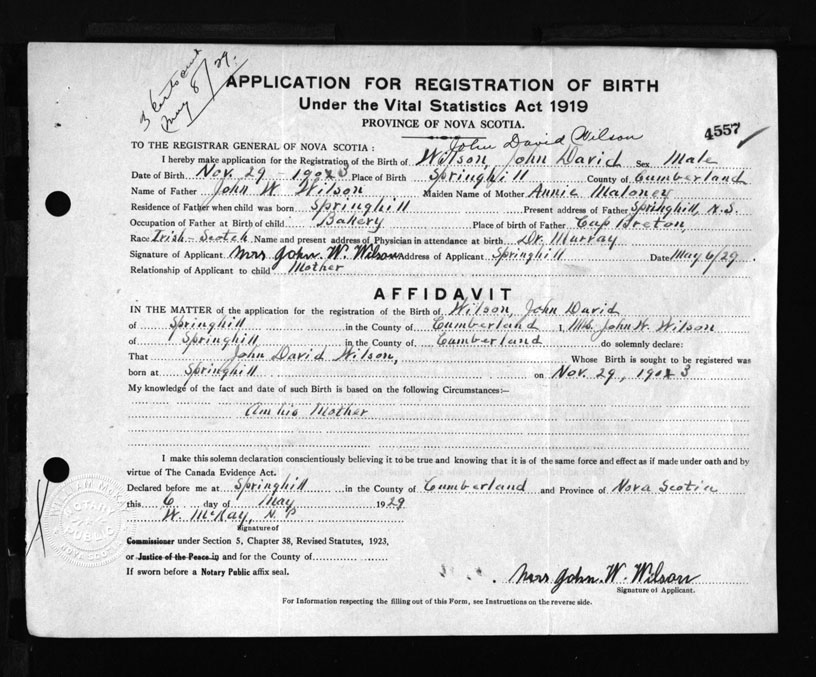 3 certs sent
May 8/29.
APPLICATION FOR REGISTRATION OF BIRTH
Under the Vital Statistics Act 1919
PROVINCE OF NOVA SCOTIA.
4557
TO THE REGISTRAR GENERAL OF NOVA SCOTIA: John David Wilson
I hereby make application for the Registration of the Birth of Wilson, John David Sex Male
Date of Birth Nov. 29 - 1903 Place of Birth Springhill County of Cumberland
Name of Father John W. Wilson Maiden Name of Mother Annie Maloney
Residence of Father when child was born Springhill Present address of Father Springhill, N.S.
Occupation of Father at Birth of child Bakery Place of birth of Father Cap Breton,
Race Irish-Scotch Name and present address of Physician in attendance at birth Dr. Murray
Signature of Applicant Mrs John. W. Wilson Address of Applicant Springhill Date May 6/29
Relationship of Applicant to child Mother
AFFIDAVIT
IN THE MATTER of the application for the registration of the Birth of Wilson, John David
of Springhill in the County of Cumberland I, Mrs. John W. Wilson
of Springhill, in the County of Cumberland do solemnly declare:
That John David Wilson, Whose Birth is sought to be registered was
born at Springhill on Nov. 29, 1903
My knowledge of the fact and date of such Birth is based on the following Circumstances:—
Am his Mother
I make this solemn declaration conscientiously believing it to be true and knowing that it is of the same force and effect as if made under oath and by
virtue of The Canada Evidence Act.
Declared before me at Springhill in the County of Cumberland and Province of Nova Scotia
this 6 day of May 1929
W. McKay, N.P
Signature of
Commissioner under Section 5, Chapter 38, Revised Statutes, 1923,
or Justice of the Peace in and for the County of
If sworn before a Notary Public affix seal.
WILLIAM McKAY
NOTARY PUBLIC
NOVA SCOTIA
Mrs John. W. Wilson
Signature of Applicant.
For Information respecting the filling out of this Form, see Instructions on the reverse side.